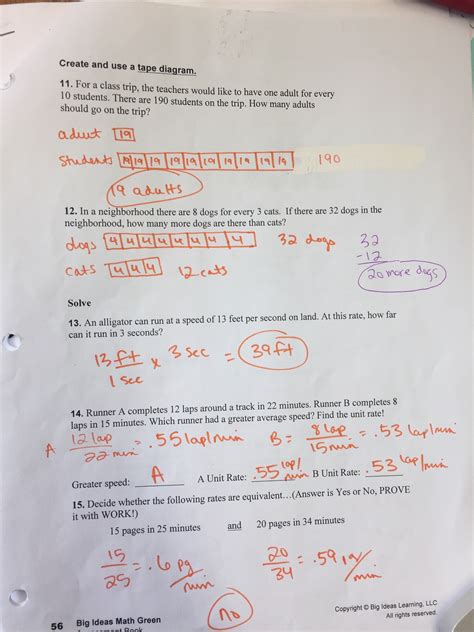 Create and use a tape diagram.
11. For a class trip, the teachers would like to have one adult for every
10 students. There are 190 students on the trip. How many adults
should go on the trip?
adult 19
Students 19 19 19 19 19 19 19 19 19 19 190
19 adults
12. In a neighborhood there are 8 dogs for every 3 cats. If there are 32 dogs in the
neighborhood, how many more dogs are there than cats?
dogs 4 4 4 4 4 4 4 4 32 dogs 32
-12
cats 4 4 4 12 cats 20 more dogs
Solve
13. An alligator can run at a speed of 13 feet per second on land. At this rate, how far
can it run in 3 seconds?
13 ft x 3 sec = 39 ft
1 sec
14. Runner A completes 12 laps around a track in 22 minutes. Runner B completes 8
laps in 15 minutes. Which runner had a greater average speed? Find the unit rate!
A 12 lap = .55 lap/min B = 8 lap = .53 lap/min
22 min 15 min
Greater speed: A A Unit Rate: .55 lap/min B Unit Rate: .53 lap/min
15. Decide whether the following rates are equivalent...(Answer is Yes or No, PROVE
it with WORK!)
15 pages in 25 minutes and 20 pages in 34 minutes
15 = .6 pg/min 20 = .59 pg/min
25 34
no
Copyright © Big Ideas Learning, LLC
All rights reserved.
56 Big Ideas Math Green
Book